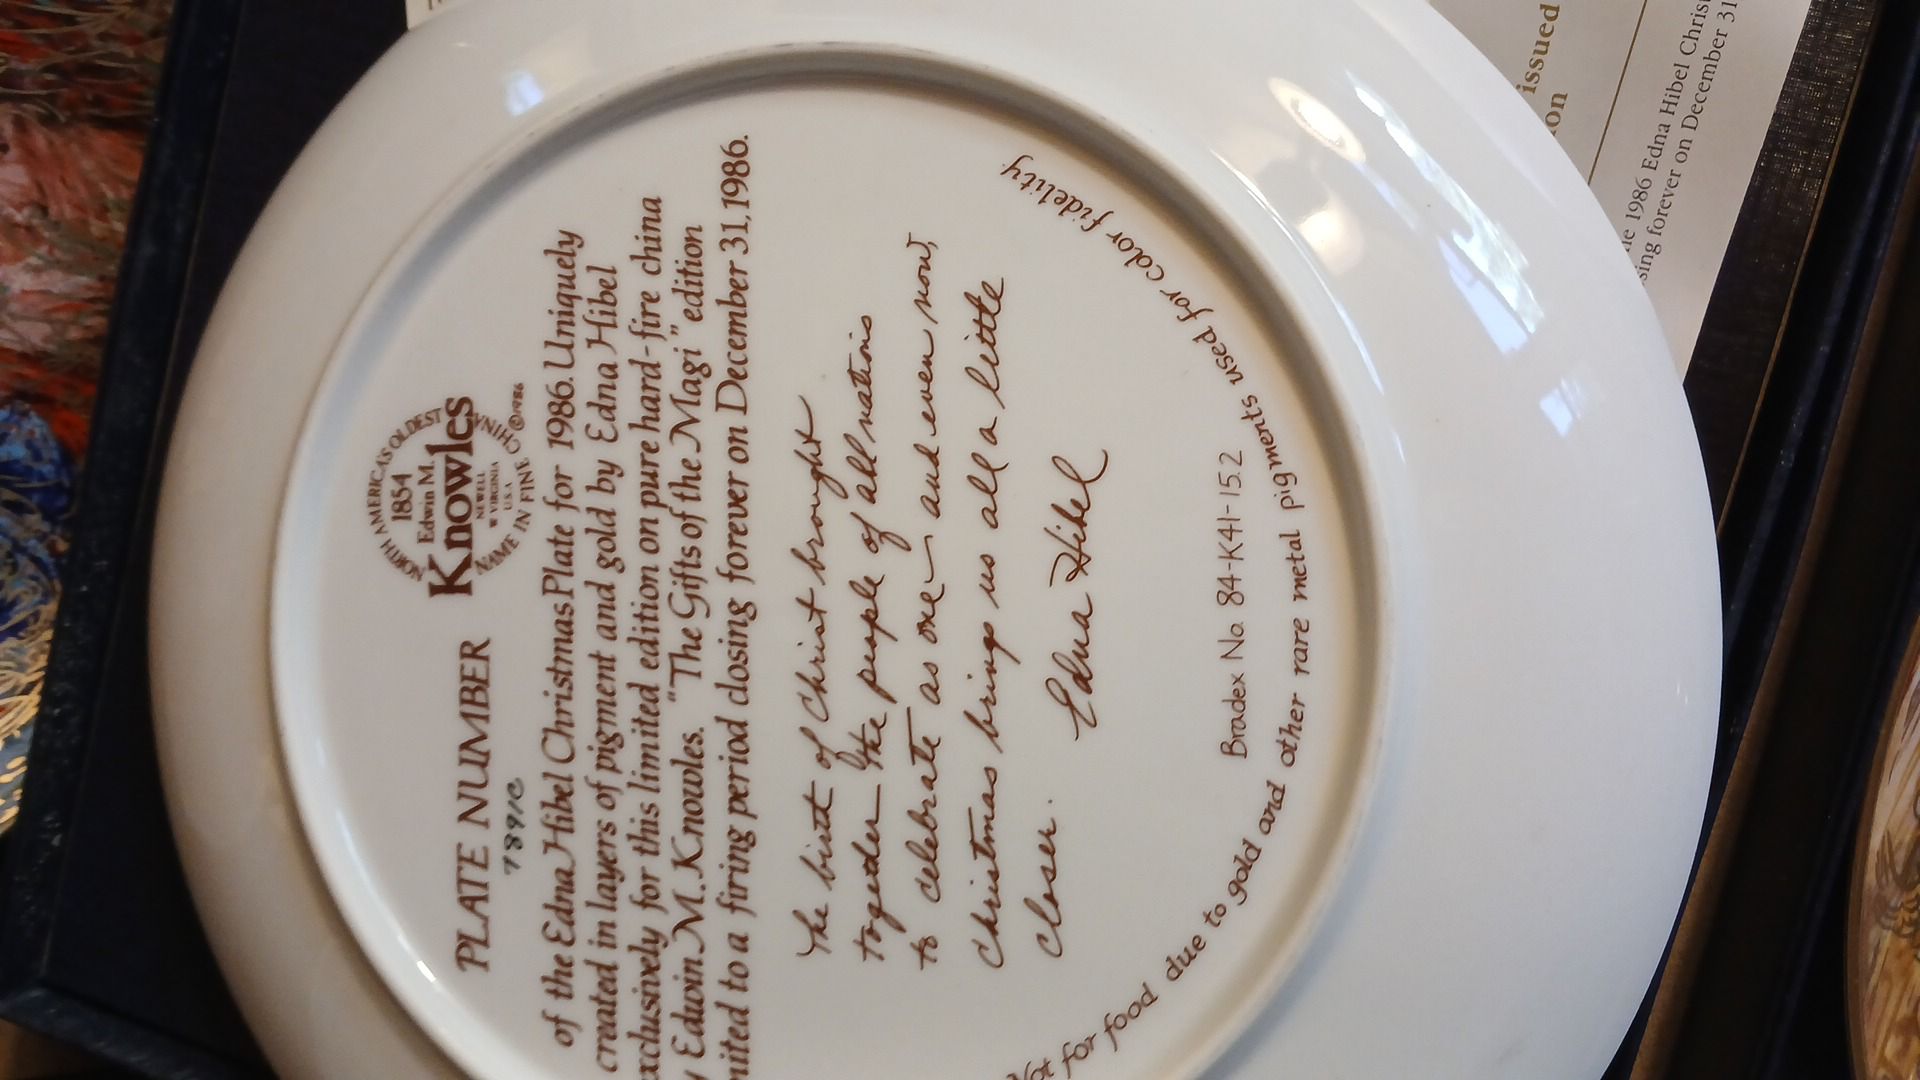 NORTH AMERICA'S OLDEST
1854
Edwin M.
Knowles
NEWELL
W VIRGINIA
U.S.A
NAME IN FINE CHINA
©1986
PLATE NUMBER
7891C
of the Edna Hibel Christmas Plate for 1986. Uniquely
created in layers of pigment and gold by Edna Hibel
xclusively for this limited edition on pure hard-fire china
y Edwin M. Knowles. "The Gifts of the Magi" edition
mited to a firing period closing forever on December 31, 1986.
The birth of Christ brought
together the people of all nations
to celebrate as one — and even now,
Christmas brings us all a little
closer.
Edna Hibel
Bradex No. 84-K41-15.2
Not for food due to gold and other rare metal pigments used for color fidelity
issued
on
he 1986 Edna Hibel Christ
sing forever on December 31